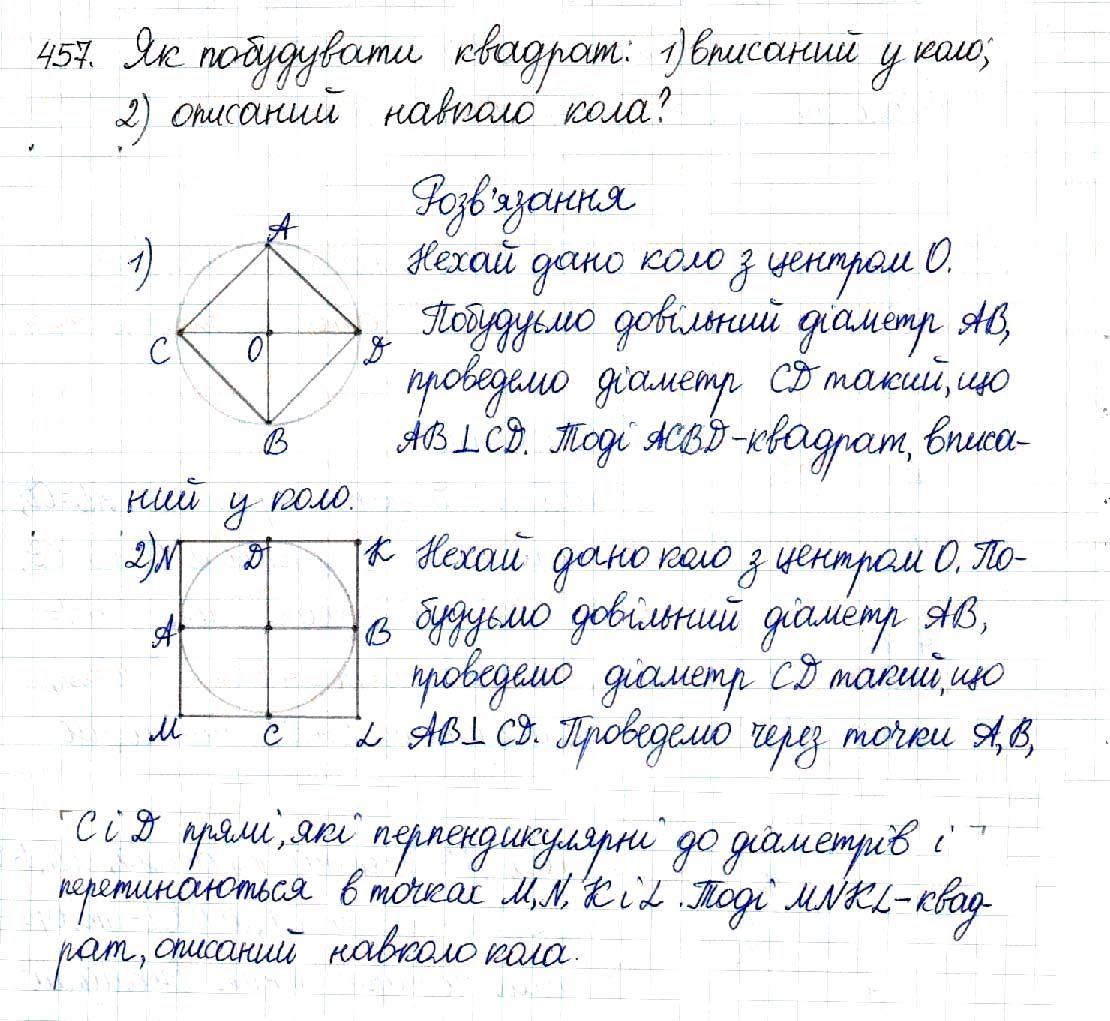 457. Як побудувати квадрат: 1) вписаний у коло;
2) описаний навколо кола?
Розв'язання
1)
A
C
O
D
B
Нехай дано коло з центром O.
Побудуємо довільний діаметр AB,
проведемо діаметр CD такий, що
AB⊥CD. Тоді ACBD-квадрат, вписа-
ний у коло.
2) N
D
K
A
B
M
C
L
Нехай дано коло з центром O. По-
будуьмо довільний діаметр AB,
проведемо діаметр CD такий, що
AB⊥CD. Проведемо через точки A, B,
C і D прямі, які перпендикулярні до діаметрів і
перетинаються в точках M, N, K і L. Тоді MNKL-квад-
рат, описаний навколо кола.